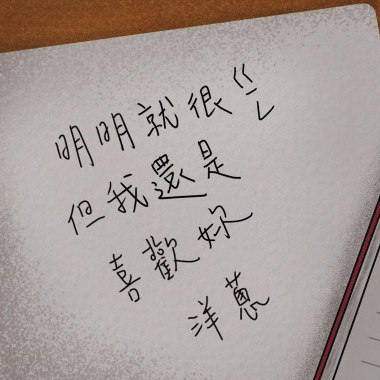 明明就很ㄍㄧㄥ
但我還是
喜歡妳
洋蔥